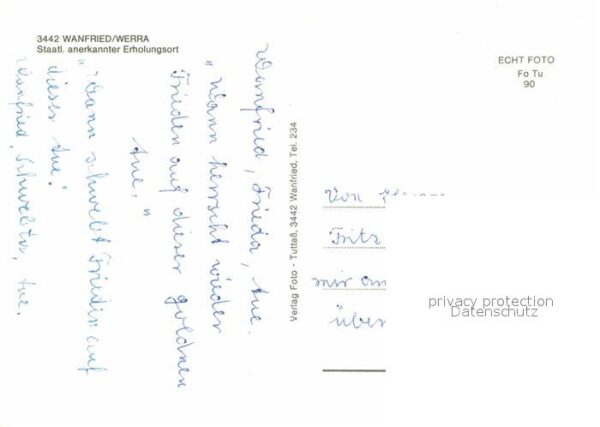 3442 WANFRIED/WERRA
Staatl. anerkannter Erholungsort
Wanfried, Frieda, Aue.
„Wann herrscht wieder
Frieden auf dieser goldnen
Aue."
„Wann schwebt Frieden auf
dieser Aue."
Wanfried, Schwebda, Aue.
Verlag Foto - Tuttaß, 3442 Wanfried, Tel. 234
ECHT FOTO
Fo Tu
90
Von
Fritz
mir an
über
privacy protection
Datenschutz